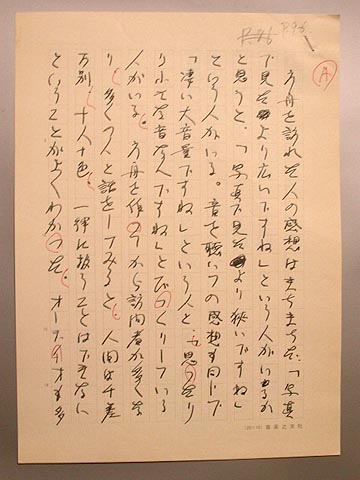 P.96
P.96
A
方舟を訪れた人の感想はまちまちだ。「写真
で見たより広いですね」という人がいるか
と思うと、「写真で見たより狭いですね」
という人がいる。音を聴いての感想も同じで
「凄い大音量ですね」という人と、「思ったよ
り小さな音なんですね」とびっくりしている
人がいる。方舟を作ってから訪問者が多くな
り、多くの人と話をしてみると、人間は千差
万別、十人十色、一律に扱うことはできない
ということがよくわかった。オーディオも多
音楽之友社